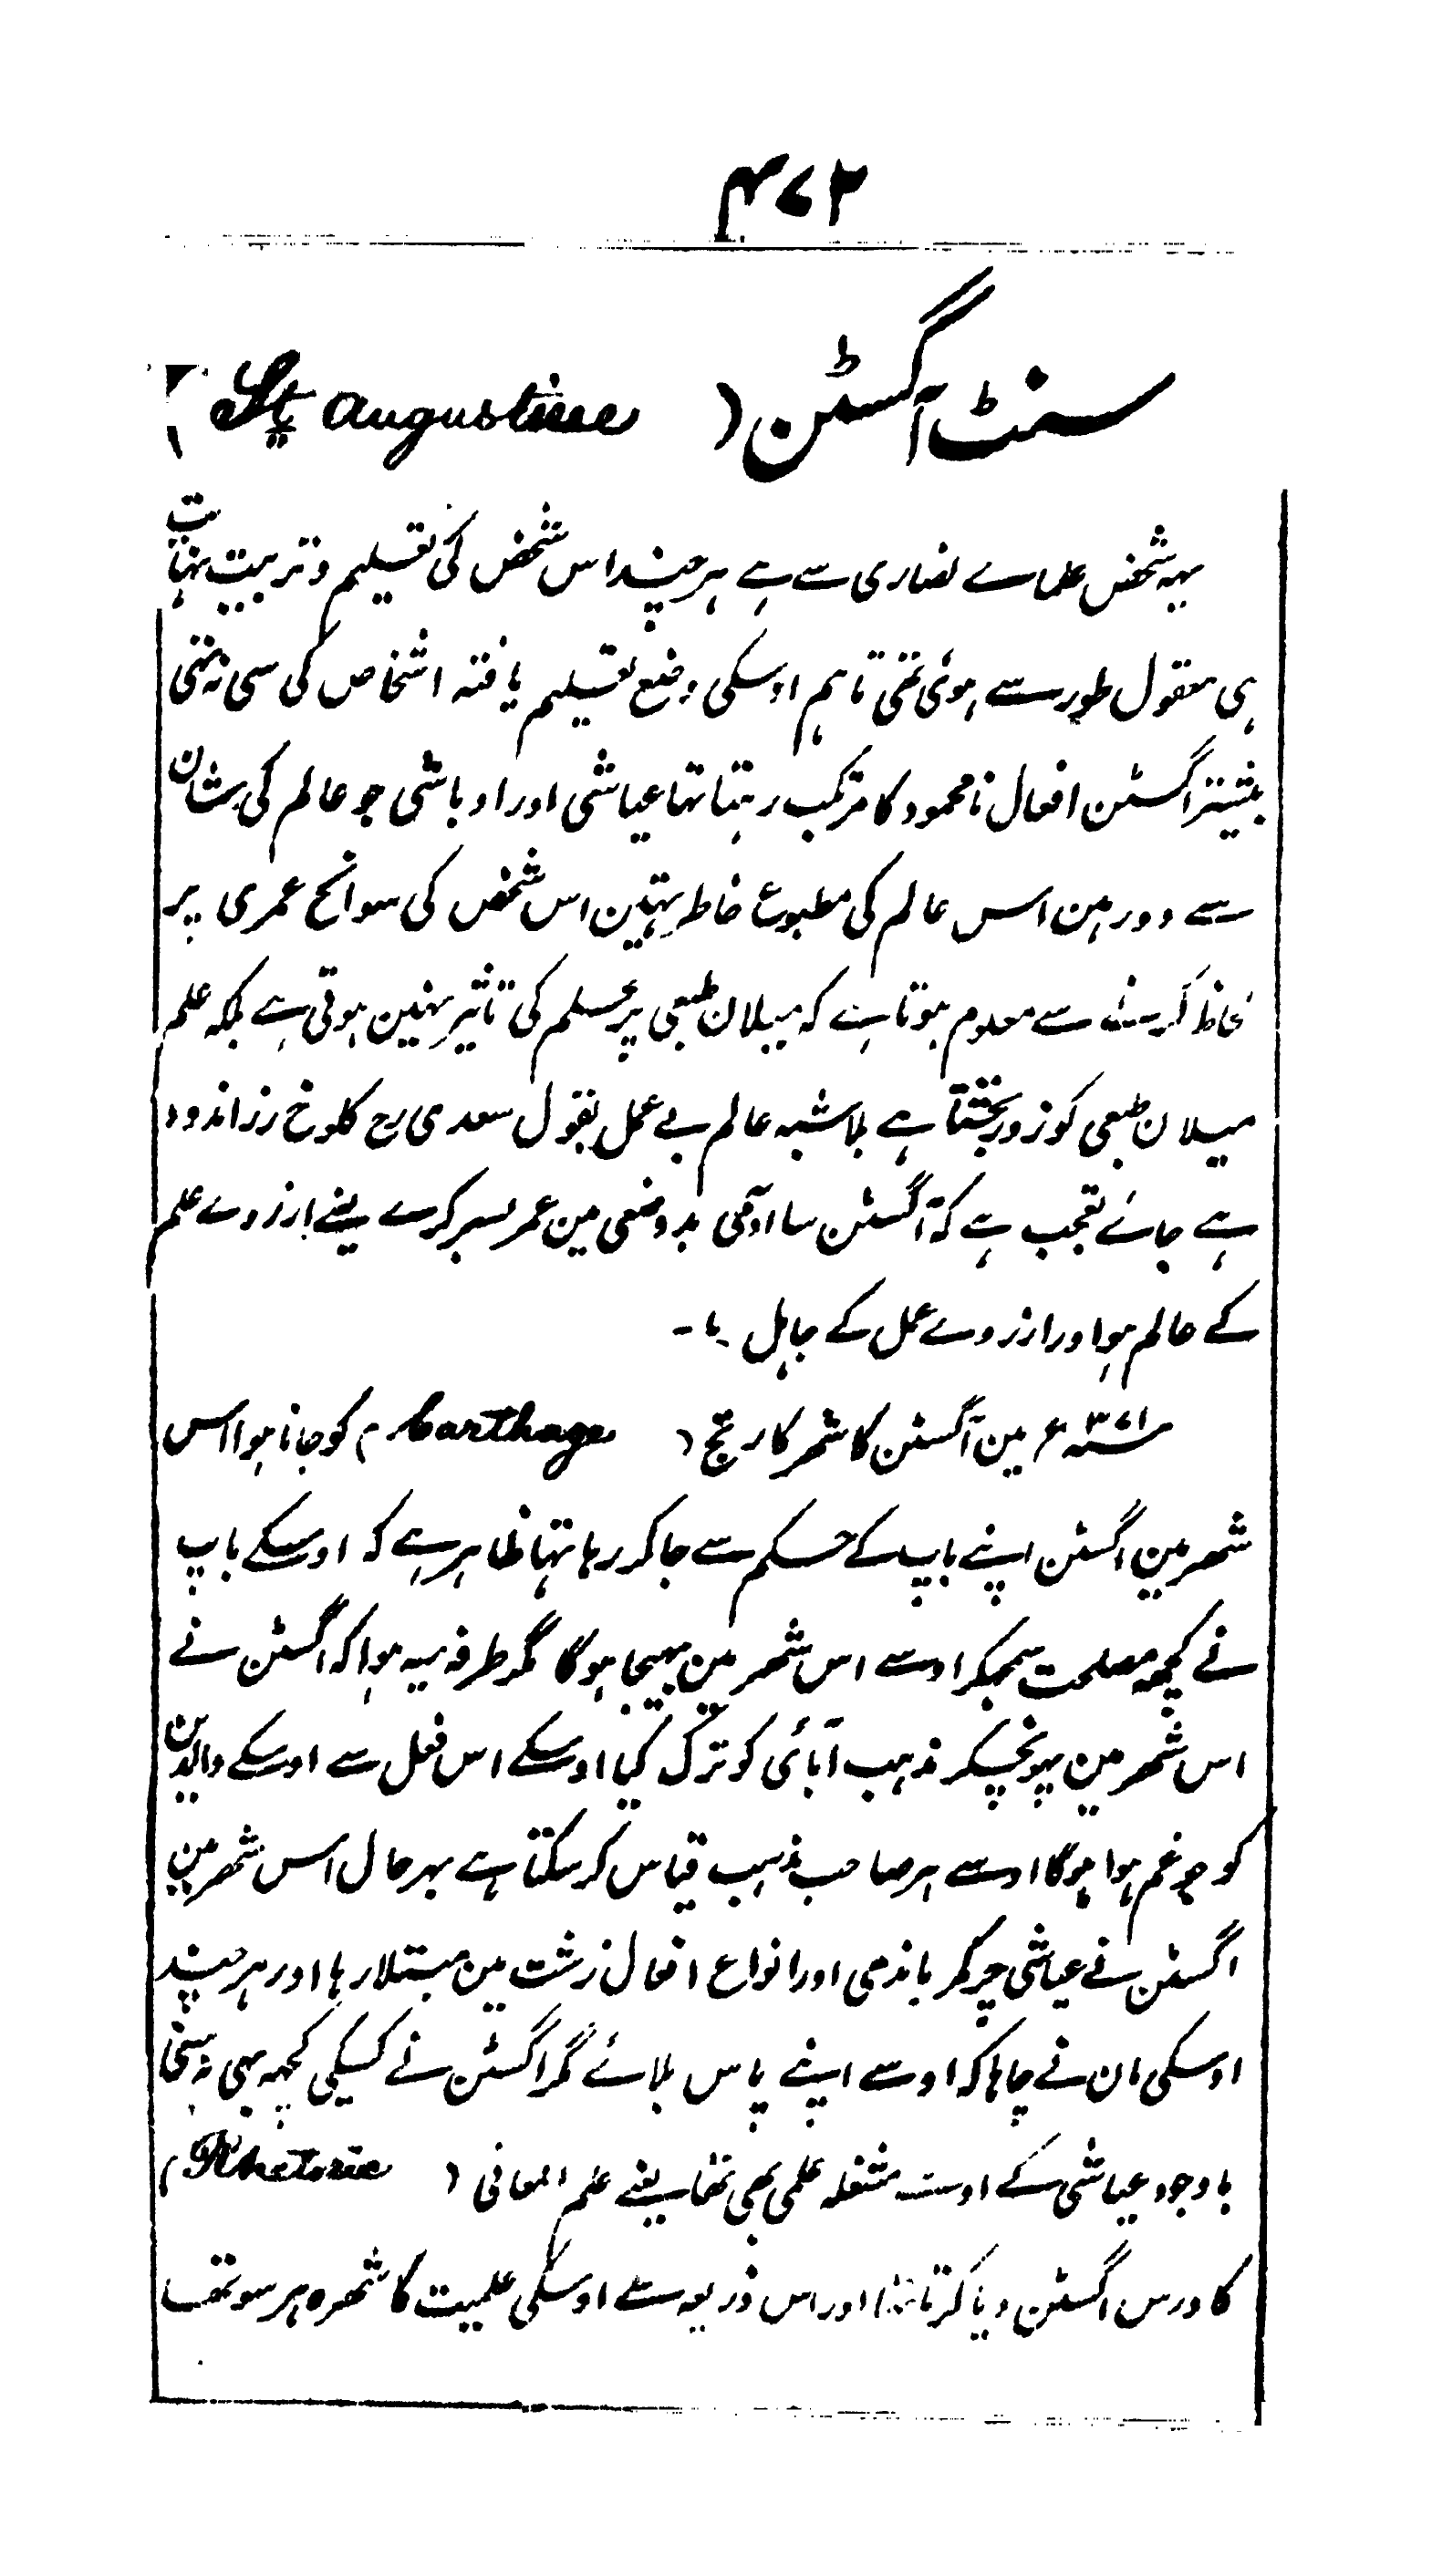 ۴۷۲
سنٹ آگسٹن ( St Augustine )
یہہ شخص علماے نصاری سے ہے ہر چند اس شخص کی تعلیم و تربیت نہایت
ہی معقول طور سے ہوئی تھی تاہم اوسکی وضع تعلیم یافتہ اشخاص کی سی نہ تھی
بیشتر اگسٹن افعال نامحمود کا مرتکب رہتا تہا عیاشی اور اوباشی جو عالم کی شان
سے دور ہین اس عالم کی مطبوع خاطر تہین اس شخص کی سوانح عمری پر
لحاظ کرنے سے معلوم ہوتا ہے کہ میلان طبعی پر علم کی تاثیر نہین ہوتی ہے بلکہ علم
میلان طبعی کو زور بخشتا ہے بلاشبہ عالم بے عمل بقول سعدی رح کلوخ زر اندود
ہے جاے تعجب ہے کہ آگسٹن سا آدمی بدوضعی مین عمر بسر کرے یعنے ازروے علم
کے عالم ہو اور ازروے عمل کے جاہل ۔،۔
۳۷۱؁ء مین آگسٹن کا شہر کارتھج ( Carthage ) کو جانا ہوا اس
شہر مین اگسٹن اپنے باپ کے حکم سے جاکر رہا تہا ظاہر ہے کہ اوسکے باپ
نے کچھہ مصلحت سمجھکر اوسے اس شہر مین بھیجا ہوگا مگر طرفہ یہہ ہوا کہ اگسٹن نے
اس شہر مین پہونچکر مذہب آبائی کو ترک کیا اوسکے اس فعل سے اوسکے والدین
کو جو غم ہوا ہوگا اوسے ہر صاحب مذہب قیاس کر سکتا ہے بہر حال اس شہر مین
اگسٹن نے عیاشی پر کمر باندھی اور انواع افعال زشت مین مبتلا رہا اور ہر چند
اوسکی مان نے چاہا کہ اوسے اپنے پاس بلائے مگر اگسٹن نے کسیکی کچھہ بھی نہ سنی
باوجود عیاشی کے اوسے مشغلہ علمی بھی تھا یعنے علم المعانی ( Rhetoric )
کا درس اگسٹن دیا کرتا تھا اور اس ذریعہ سے اوسکی علمیت کا شہرہ ہر سو تھا